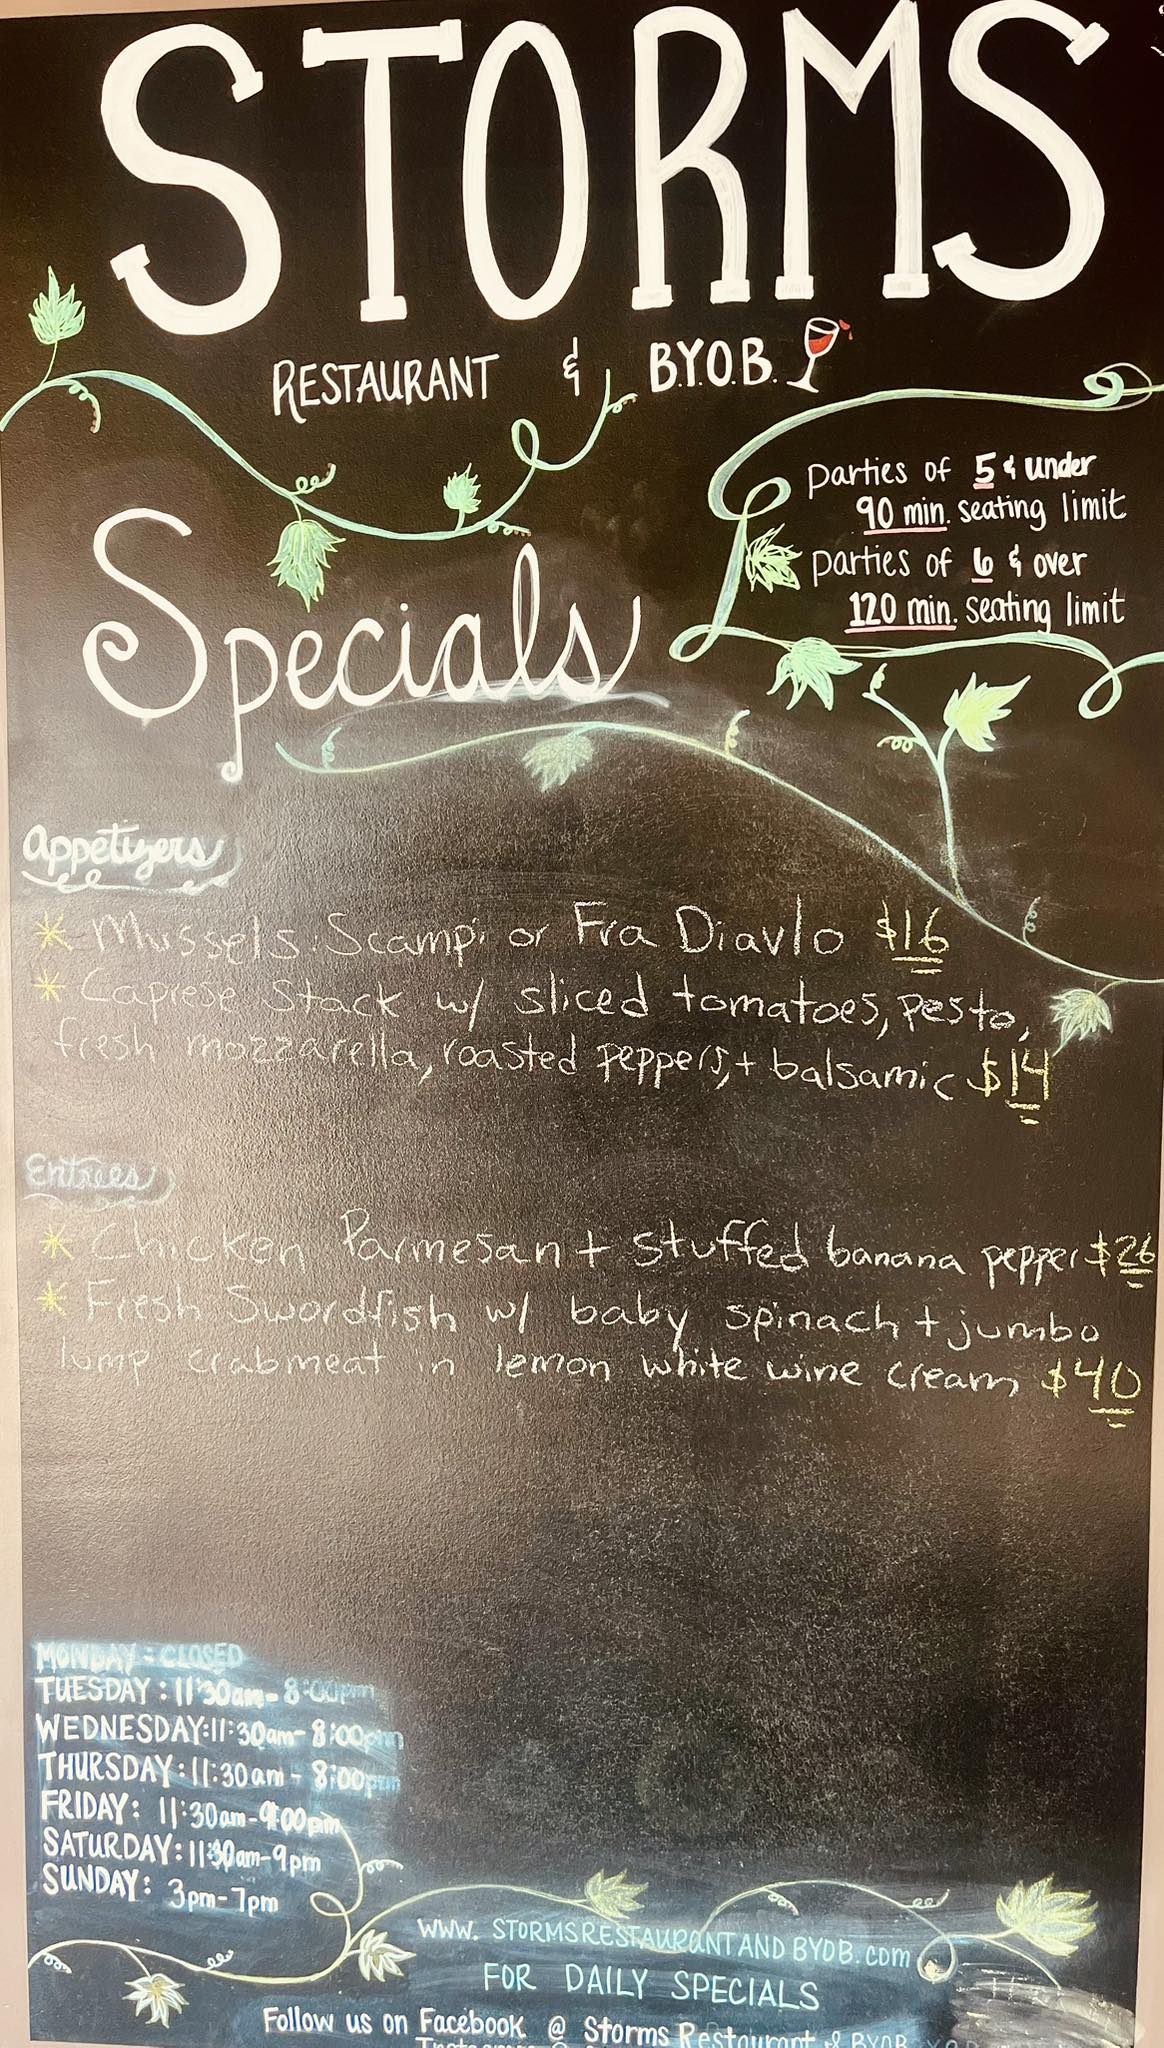 STORMS
RESTAURANT & B.Y.O.B.
parties of 5 & under
90 min. seating limit
parties of 6 & over
120 min. seating limit
Specials
Appetizers
* Mussels: Scampi or Fra Diavlo $16
* Caprese Stack w/ sliced tomatoes, pesto,
fresh mozzarella, roasted peppers, + balsamic $14
Entrees
* Chicken Parmesan + stuffed banana pepper $26
* Fresh Swordfish w/ baby spinach + jumbo
lump crabmeat in lemon white wine cream $40
MONDAY = CLOSED
TUESDAY: 11:30am-8:00pm
WEDNESDAY: 11:30am-8:00pm
THURSDAY: 11:30am - 8:00pm
FRIDAY: 11:30am-9:00pm
SATURDAY: 11:30am-9pm
SUNDAY: 3pm-7pm
www. STORMSRESTAURANTANDBYOB.com
FOR DAILY SPECIALS
Follow us on Facebook @ Storms Restaurant & BYOB